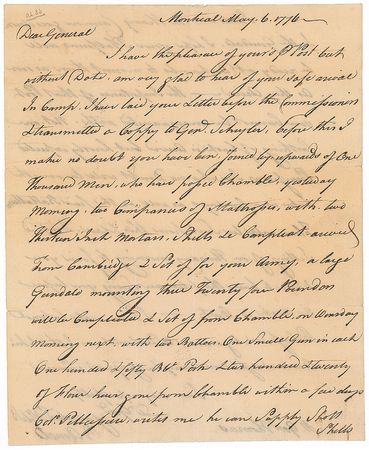 Montreal May. 6. 1776
Dear General
I have the pleasure of yours ⅌ Post but
without Date, am very glad to hear of your safe arival
In Camp. I have laid your Letter before the Commissioners
& transmitted a Coppy to Genl. Schuyler, before this I
make no doubt you have ben joined by upwards of One
Thousand Men, who have passed Chamble, yesterday
Morning, two Companies of Mattrosses, with two
Thirteen Inch Mortars, Shells &c Compleat arrived
From Cambridge & Set of for your Army, a large
Gundalo mounting three Twenty four Pounders
will be Compleated & Set of from Chamble, on
Morning next, with two Batteos One Small Gun in each
One hundred & fifty Bbl. Pork & two hundred & twenty
of Flour have gone from Chamble within a few days
Col. writes me he can Supply Shott
Shells